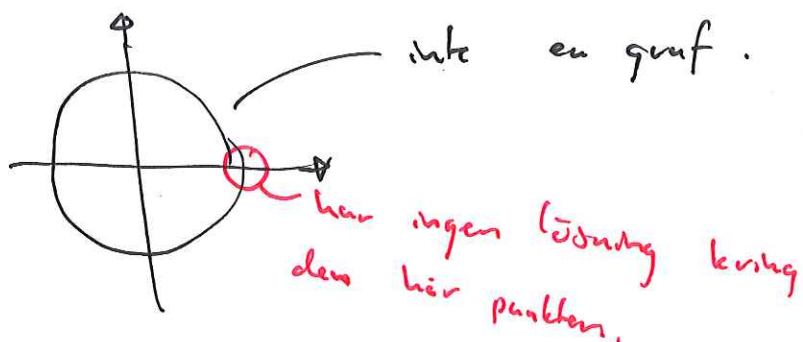 inte en graf.
har ingen lösning kring
den här punkten.